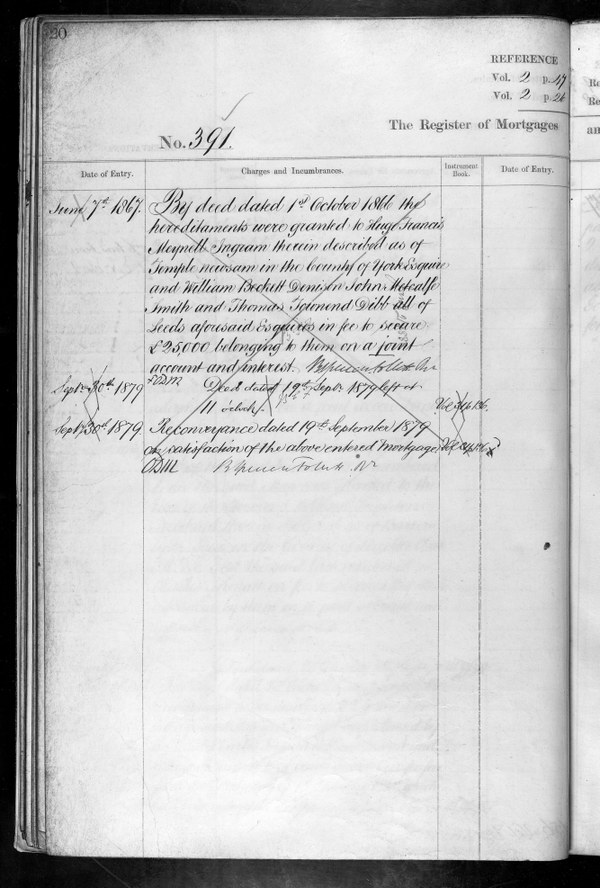 20
REFERENCE
Vol. 2 p. 47
Vol. 2 p. 26
The Register of Mortgages
No. 391.
Date of Entry. Charges and Incumbrances. Instrument Book. Date of Entry.
June 7th 1867. By deed dated 1st October 1866 the
hereditaments were granted to Hugo Francis
Meynell Ingram therein described as of
Temple newsam in the County of York Esquire
and William Beckett Denison John Metcalfe
Smith and Thomas Townend Dibb all of
Leeds aforesaid Esquires in fee to secure
£25,000 belonging to them on a joint
account and interest.
Septr 30th 1879 Deed dated 19th Septr 1879 left at
11 o'clock.
Septr 30th 1879 Reconveyance dated 19th September 1879
on satisfaction of the above entered mortgage.